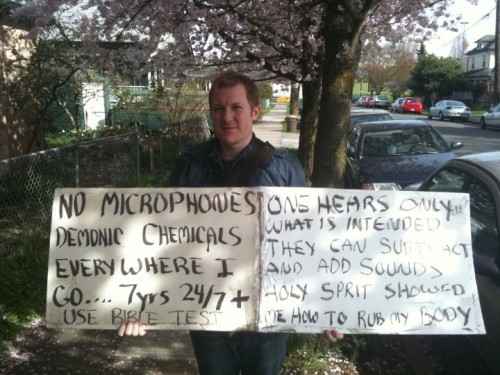 NO MICROPHONES
DEMONIC CHEMICALS
EVERYWHERE I
GO.... 7yrs 24/7+
USE BIBLE TEST
ONE HEARS ONLY
WHAT IS INTENDED
THEY CAN SUBTRACT
AND ADD SOUNDS
HOLY SPRIT SHOWED
ME HOW TO RUB MY BODY